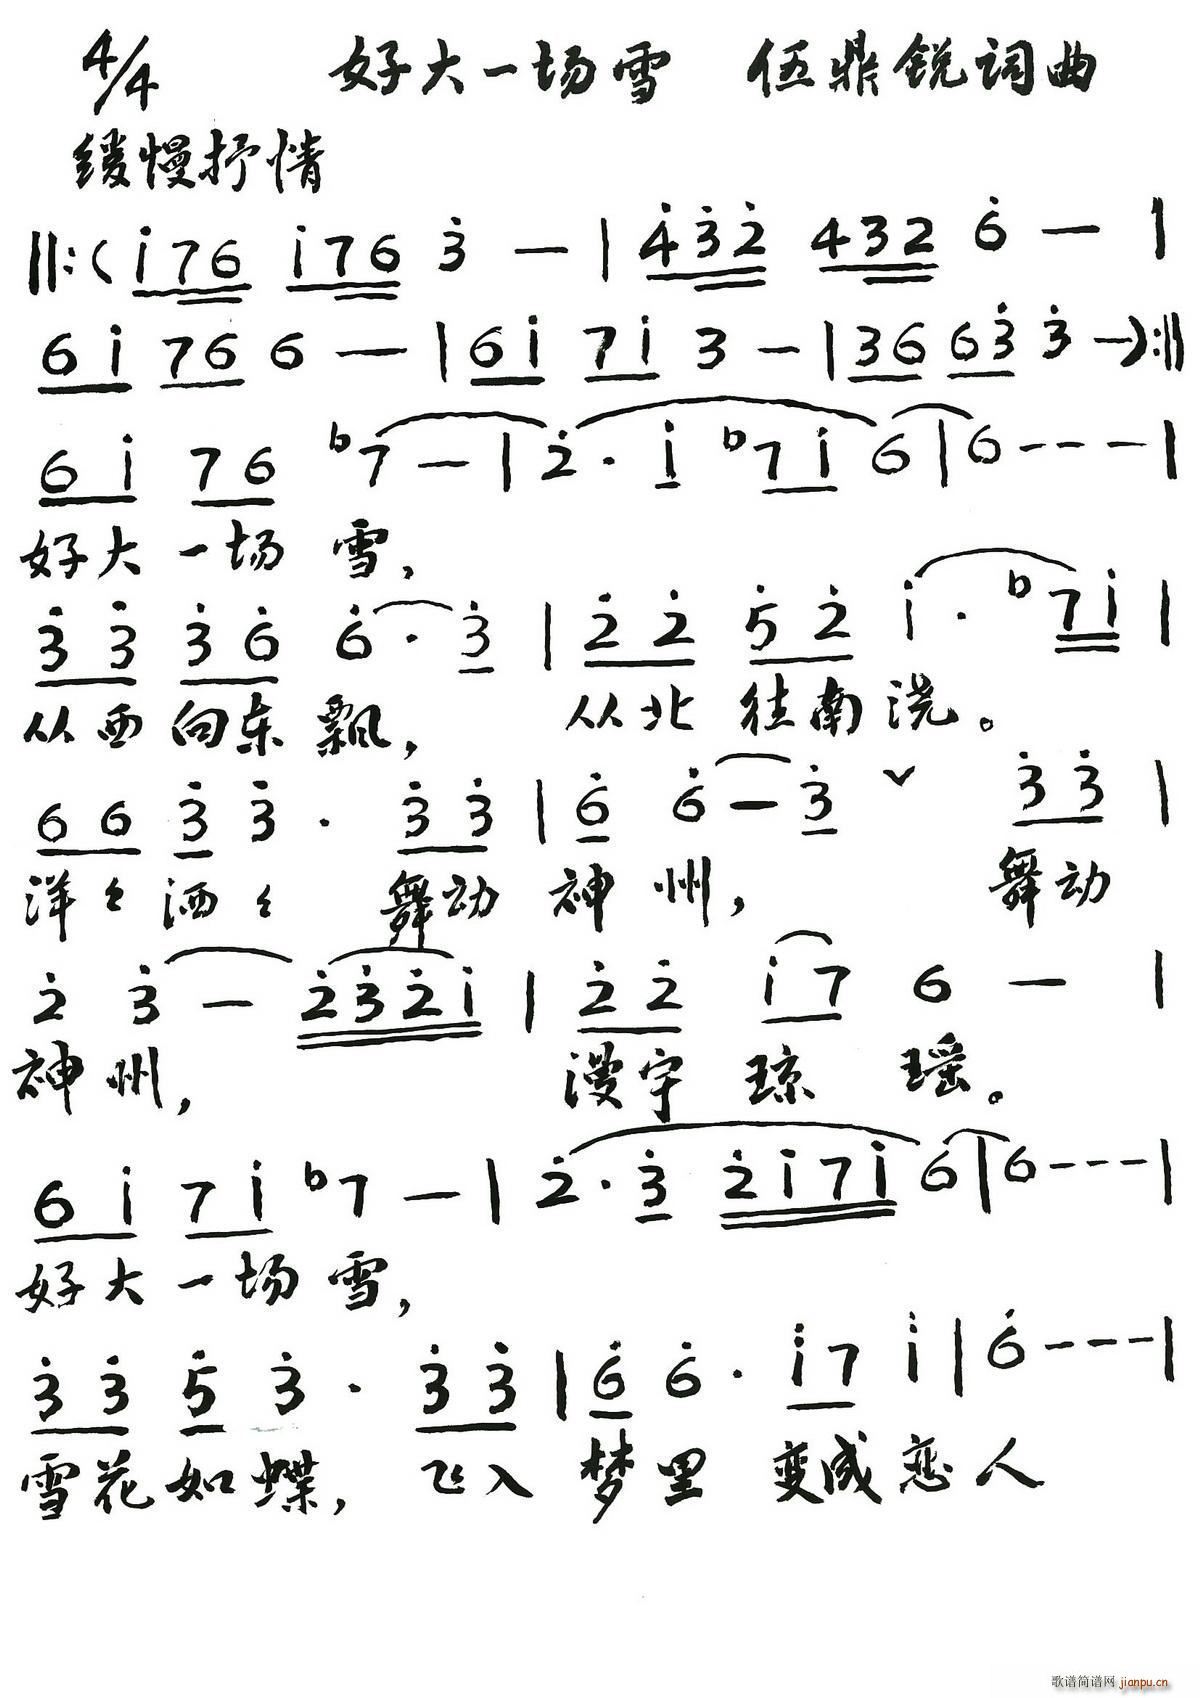 4/4 好大一场雪 伍鼎锐词曲
缓慢抒情
‖:( i̇76 i̇76 3̇ — | 4̇3̇2̇ 432 6̇ — |
6i̇ 76 6 — | 6i̇ 7i̇ 3 — | 36 63̇ 3̇ — ):‖
6i̇ 76 ♭7 — | 2̇· i̇ ♭7i̇ 6 | 6 - - - |
好大一场雪,
3̇3̇ 3̇6̇ 6̇· 3̇ | 2̇2̇ 5̇2̇ i̇· ♭7i̇ |
从西向东飘, 从北往南浇。
66 3̇ 3̇· 3̇3̇ | 6̇ 6̇ — 3̇ ∨ 3̇3̇ |
洋々洒々 舞动神州, 舞动
2̇ 3̇ — 2̇3̇2̇i̇ | 2̇2̇ i̇7 6 — |
神州, 漫宇琼瑶。
6i̇ 7i̇ ♭7 — | 2̇· 3̇ 2̇i̇7i̇ 6 | 6 - - - |
好大一场雪,
3̇3̇ 5̇ 3̇· 3̇3̇ | 6̇ 6̇· i̇7 i̇ | 6̇ - - - |
雪花如蝶, 飞入梦里变成恋人
歌谱简谱网 jianpu.cn